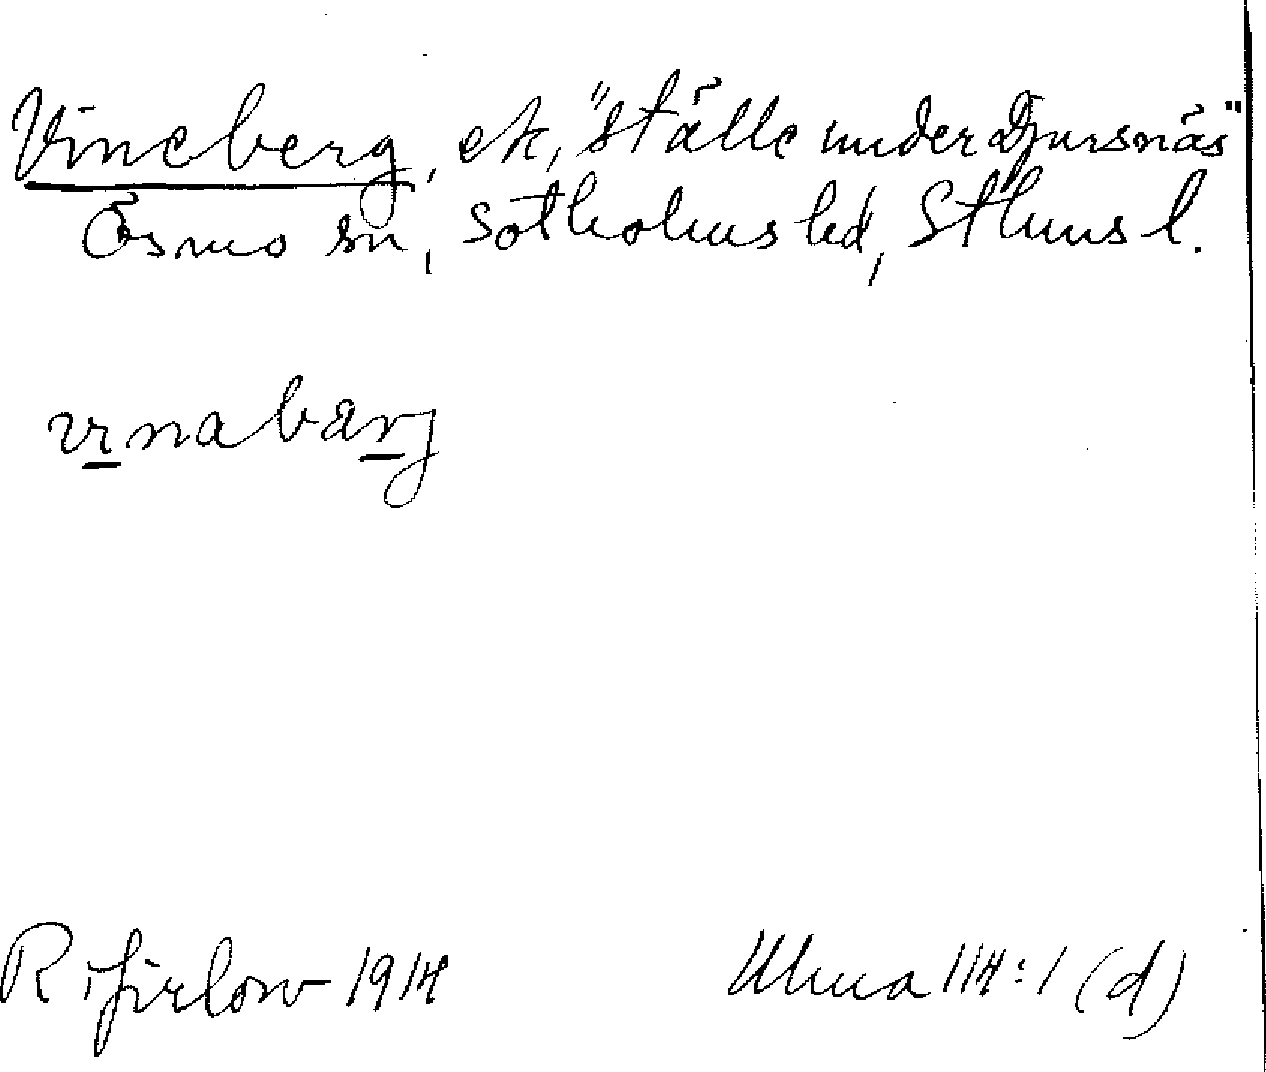 Vineberg, ek, "Ställe under Djursnäs"
Ösmo sn, Sotholms hd, Sthms l.
vɪnabærj
R 1914
Uluua 114:1 (d)